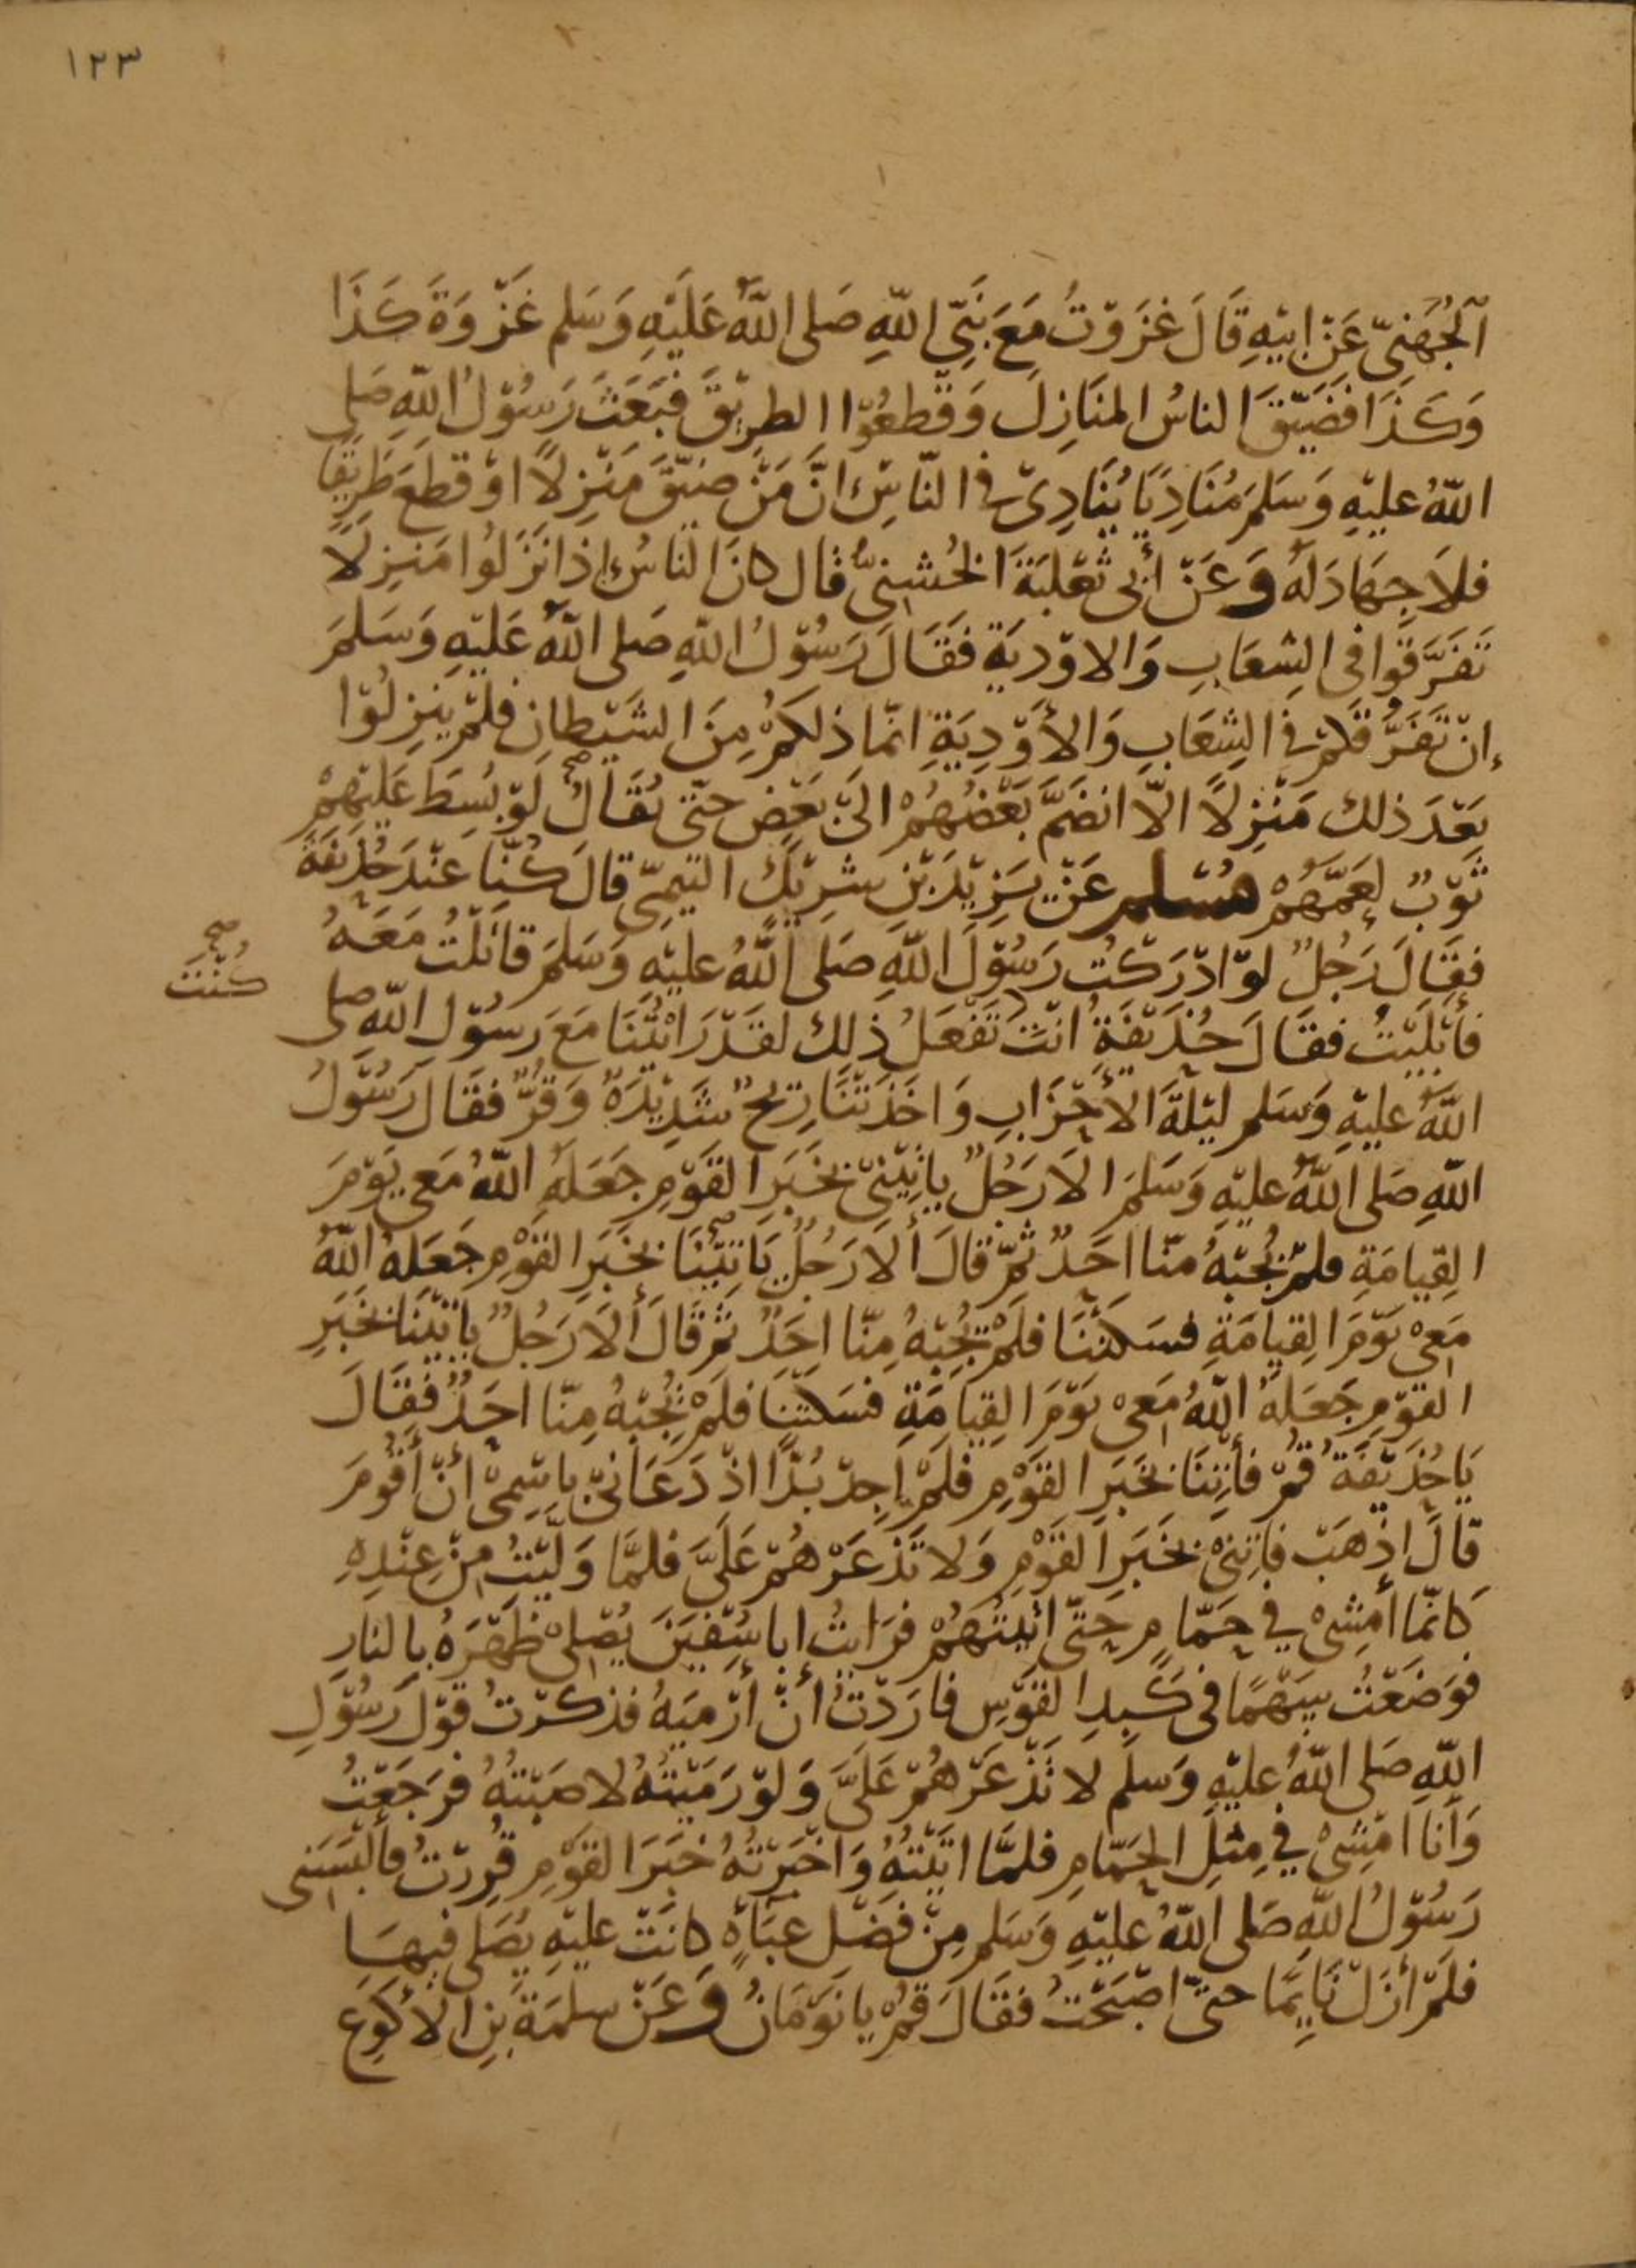 ١٢٣
الْجُهَنِيِّ عَنْ ابِيْهِ قَالَ غَزَوْتُ مَعَ نَبِيِّ اللّهِ صَلى اللّهُ عَلَيْهِ وَسَلم غَزْوَةَ كَذَا
وَكَذَا فَضَيَّقَ الناسُ المنَازِلَ وَقَطعُوْا الطرِيْقَ فَبَعَثَ رَسُوْلُ اللّهِ صَلى
اللّهُ عليْهِ وَسَلمَ مُنَادِيًا يُنَادِىْ فى النّاسِ انَّ مَنْ ضيّقَ مَنْزِلًا اوْ قطعَ طَرِيْقًا
فلَا جِهَادَ لَهُ وَعَنْ أَبى ثعْلبَةَ الخُشنِيِّ قال كانَ الناسُ إذا نَزَلُوا مَنزِلًا
تَفَرَّقُوا فى الشِعَابِ وَالاوْدِيَةِ فَقَالَ رَسُوْلُ اللّهِ صَلى اللّهُ عَليْهِ وَسَلمَ
إنْ تَفَرُّقَكُمْ فى الشِعَابِ وَالأَوْدِيَةِ انّمَا ذلكمْ مِنَ الشَيْطانِ فلمْ يَنزِلُوْا
بَعْدَ ذلك مَنْزِلًا الّا انضَمَّ بَعْضُهُمْ الىَ بَعْضٍ حتّى يُقَالُ لَوْ بُسِطَ عَليْهِمْ
صح
ثوْبٌ لعَمَّهُمْ مُسْلم عَنْ يَزِيْدَ بْنِ شرِيْكٍ التيْمِيِّ قالَ كُنَّا عِنْدَ حُذيْفَةَ
فقَالَ رَجُلٌ لوْ ادْرَكْتُ رَسُوْلَ اللّهِ صَلى اللّهُ عليْهِ وَسَلمَ قاتَلْتُ مَعَهُ
صح
كُنْتَ
فأبْلَيْتُ فقَالَ حُذيْفَةِ انْتَ تَفْعَلُ ذلِك لقَدْ رَايْتُنَا مَعَ رَسُوْلِ اللّهِ صلى
اللّهُ عليْهِ وَسَلم ليْلةَ الأحْزَابِ وَاخَذَتْنَا رِيْحٌ شَدِيْدَةٌ وَقُرٌّ فقَالَ رَسُوْلُ
اللّهِ صَلى اللّهُ عليْهِ وَسَلمَ الَا رَجُلٌ ياتِيْنِىْ بخَبَرِ القَوْمِ جَعَلهُ اللّهُ مَعِى يَوْمَ
القِيامَةِ فلمْ يُجِبْهُ منّا احَدٌ ثمّ قالَ ألَا رَجُلٌ يَاتِيْنَا بخَبَرِ القَوْمِ جَعَلهُ اللّهُ
صح
مَعِىْ يَوْمَ القِيامَةِ فسَكتْنَا فلَمْ يُجِبْهُ مِنّا احَدٌ ثمّ قَالَ ألَا رَجُلٌ ياتِيْنَا بخَبَرِ
القوْمِ جَعَلهُ اللّهُ مَعِىْ يَوْمَ القِيَامَةِ فسَكتْنَا فلَمْ يُجِبْهُ مِنّا احَدٌ فقَالَ
يَا حُذيْفَةُ قُمْ فأْتِنَا بخَبَرِ القَوْمِ فلَمْ اجِدْ بُدًّا اذْ دَعَانِىْ باسْمِىْ أنْ أقُومَ
قالَ اذْهَبْ فاتِنِىْ بخَبَرِ القَوْمِ وَلا تَذْعَرْهُمْ عَلَىَّ فلمَّا وَليْتُ مِنْ عِنْدِهِ
كانّمَا أمْشِىْ فى حَمّامٍ حَتّى اتَيْتُهُمْ فرَايتُ اباسُفيَنَ يُصْلِىْ ظَهْرَهُ بالنارِ
فوَضَعْتُ سَهْمًا فى كَبِدِ القَوْسِ فارَدْتُ أنْ أرْمِيَهُ فذكرْتُ قَوْلَ رَسُوْلِ
اللّهِ صَلى اللّهُ عليْهِ وَسَلم لا تَذْعَرْهُمْ عَلَىَّ وَلوْ رَمَيْتُهُ لاصَبْتُهُ فرَجَعْتُ
وَأنا امْشِىْ فى مِثلِ الحَمّامِ فلمَّا اتَيْتُهُ وَاخْبَرْتُهُ خَبَرَ القَوْمِ قُرِرْتُ فألْبَسَنِى
رَسُوْلُ اللّهِ صَلى اللّهُ عليْهِ وَسَلم مِنْ فضْلِ عبَاةٍ كانَتْ عليْهِ يُصَلى فيهَا
فلَمْ أزَلْ نَايِمًا حتىّ اصْبَحْتُ فقَالَ قمْ يا نوْمَانُ وَعَنْ سلمَةَ بْنِ الأكوَعِ